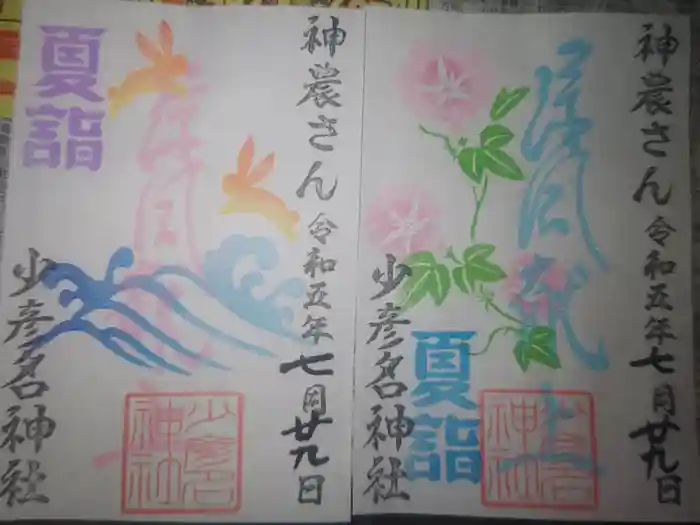 神農さん
令和五年七月廿九日
夏詣
少彦名神社
少彦名神社
神農さん
令和五年七月廿九日
夏詣
少彦名神社
少彦名神社